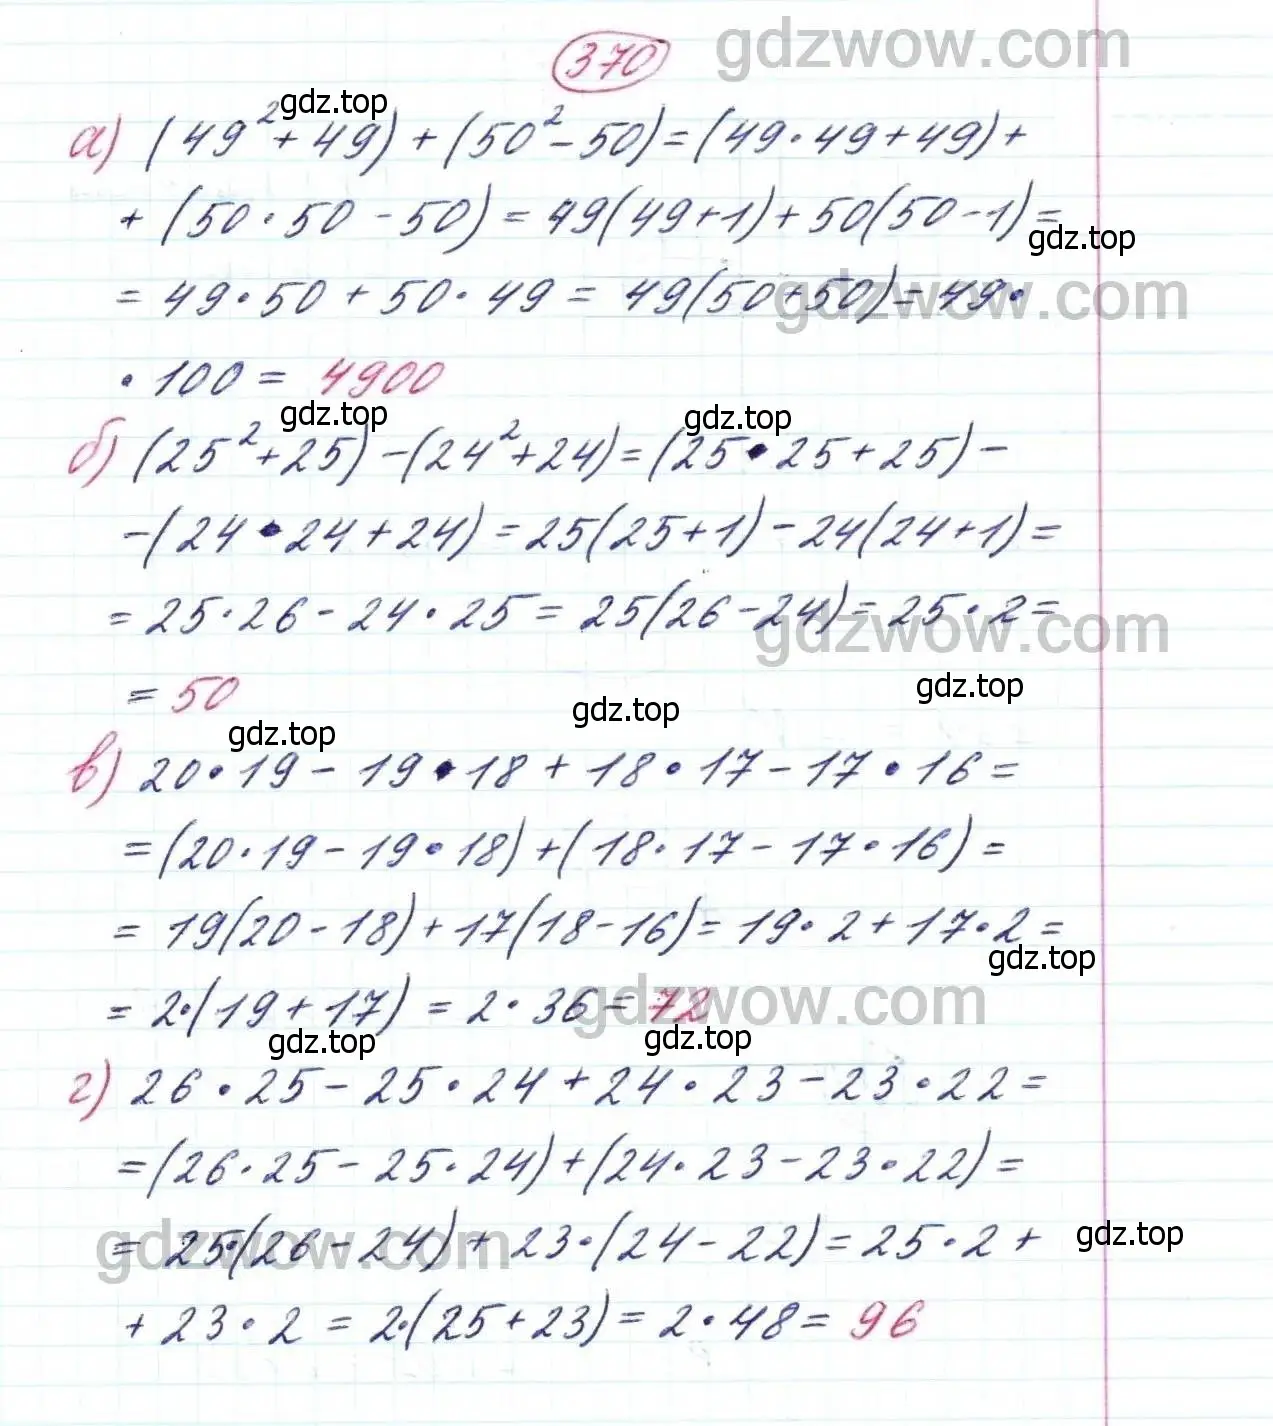 370
gdzwow.com
gdz.top
а) (49² + 49) + (50² - 50) = (49 · 49 + 49) +
+ (50 · 50 - 50) = 49(49+1) + 50(50-1) =
gdz.top
= 49 · 50 + 50 · 49 = 49(50+50) = 49 ·
gdzwow.com
· 100 = 4900
gdz.top
gdz.top
б) (25² + 25) - (24² + 24) = (25 · 25 + 25) -
- (24 · 24 + 24) = 25(25+1) - 24(24+1) =
= 25 · 26 - 24 · 25 = 25(26-24) = 25 · 2 =
gdzwow.com
= 50
gdz.top
gdz.top
gdz.top
в) 20 · 19 - 19 · 18 + 18 · 17 - 17 · 16 =
= (20 · 19 - 19 · 18) + (18 · 17 - 17 · 16) =
= 19(20-18) + 17(18-16) = 19 · 2 + 17 · 2 =
gdz.top
= 2 · (19 + 17) = 2 · 36 = 72
gdzwow.com
gdz.top
gdz.top
г) 26 · 25 - 25 · 24 + 24 · 23 - 23 · 22 =
= (26 · 25 - 25 · 24) + (24 · 23 - 23 · 22) =
= 25 · (26 - 24) + 23 · (24 - 22) = 25 · 2 +
gdzwow.com
gdz.top
+ 23 · 2 = 2 · (25 + 23) = 2 · 48 = 96